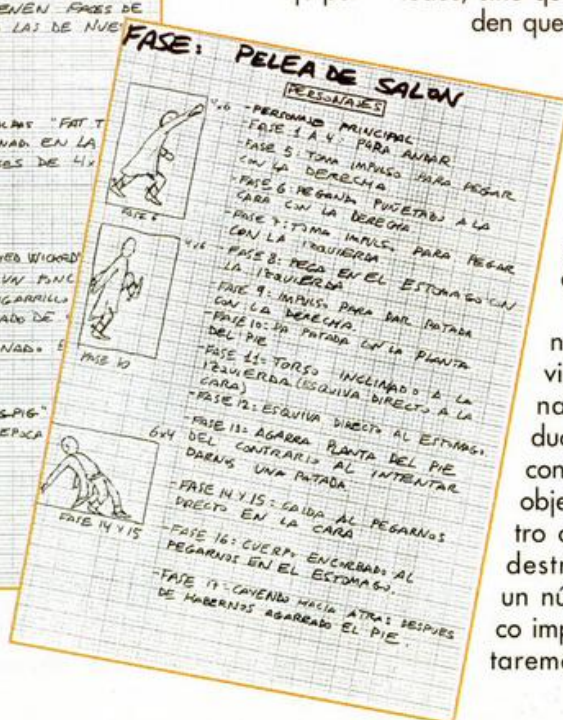 ENEN FASES DE
LAS DE NUE
"FAT T
NAD. EN LA
SES DE 4x
WICKED
UN PUNC
GARRILLO
ADO DE
NAD. E
PIG"
EPOCA
den que
FASE: PELEA DE SALON
PERSONAJES
4x6
- PERSONAJE PRINCIPAL
- FASE 1 A 4: PARA ANDAR
- FASE 5: TOMA IMPULSO PARA PEGAR
CON LA DERECHA
- FASE 6: PEGANDO PUÑETAZO A LA
CARA CON LA DERECHA
- FASE 7: TOMA IMPULSO PARA PEGAR
CON LA IZQUIERDA
FASE 6
4x6
- FASE 8: PEGA EN EL ESTOMAGO CON
LA IZQUIERDA
FASE 9: IMPULSO PARA DAR PATADA
CON LA DERECHA.
- FASE 10: DA PATADA CON LA PLANTA
DEL PIE
FASE 10
- FASE 11: TORSO INCLINADO A LA
IZQUIERDA (ESQUIVA DIRECTO A LA
CARA)
- FASE 12: ESQUIVA DIRECTO AL ESTOMAGO
- FASE 13: AGARRA PLANTA DEL PIE
DEL CONTRARIO AL INTENTAR
DARNOS UNA PATADA
6x4
- FASE 14 Y 15: CAIDA AL PEGARNOS
DIRECTO EN LA CARA
FASE 14 Y 15
- FASE 16: CUERPO ENCORBADO AL
PEGARNOS EN EL ESTOMAGO.
- FASE 17: CAYENDO HACIA ATRAS DESPUES
DE HABERNOS AGARREADO EL PIE.
n
vi
na
duc
con
obje
tro c
destr
un nú
co imp
tarem